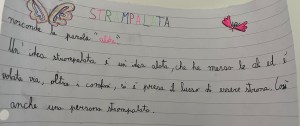 STRAMPALATA
nasconde la parola "alata"
Un'idea strampalata è un'idea alata, che ha messo le ali ed è
volata via, oltre i confini, si è presa il lusso di essere strana. Così
anche una persona strampalata.